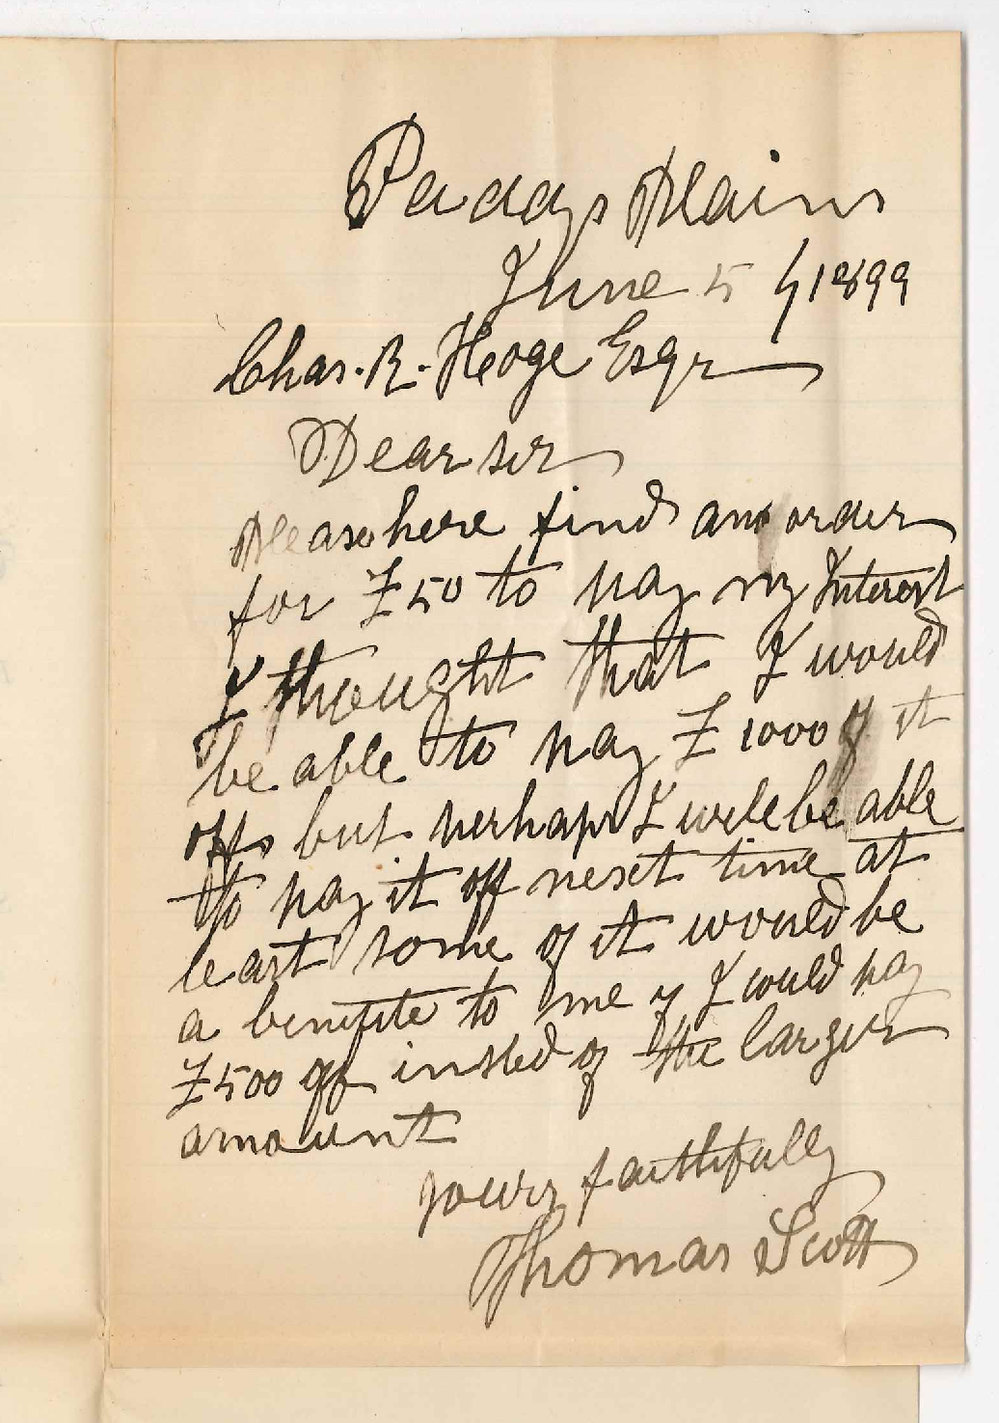 Paddys Plains
June 5/1899
Chas. R. Hoge Esqr
Dear sir
Please here find an order
for £50 to pay my Interest
I thought that I would
be able to pay £1000 of it
off but perhaps I will be able
to pay it off next time at
least some of it would be
a benifite to me if I could pay
£500 off insted of the larger
amount
yours faithfully
Thomas Scott